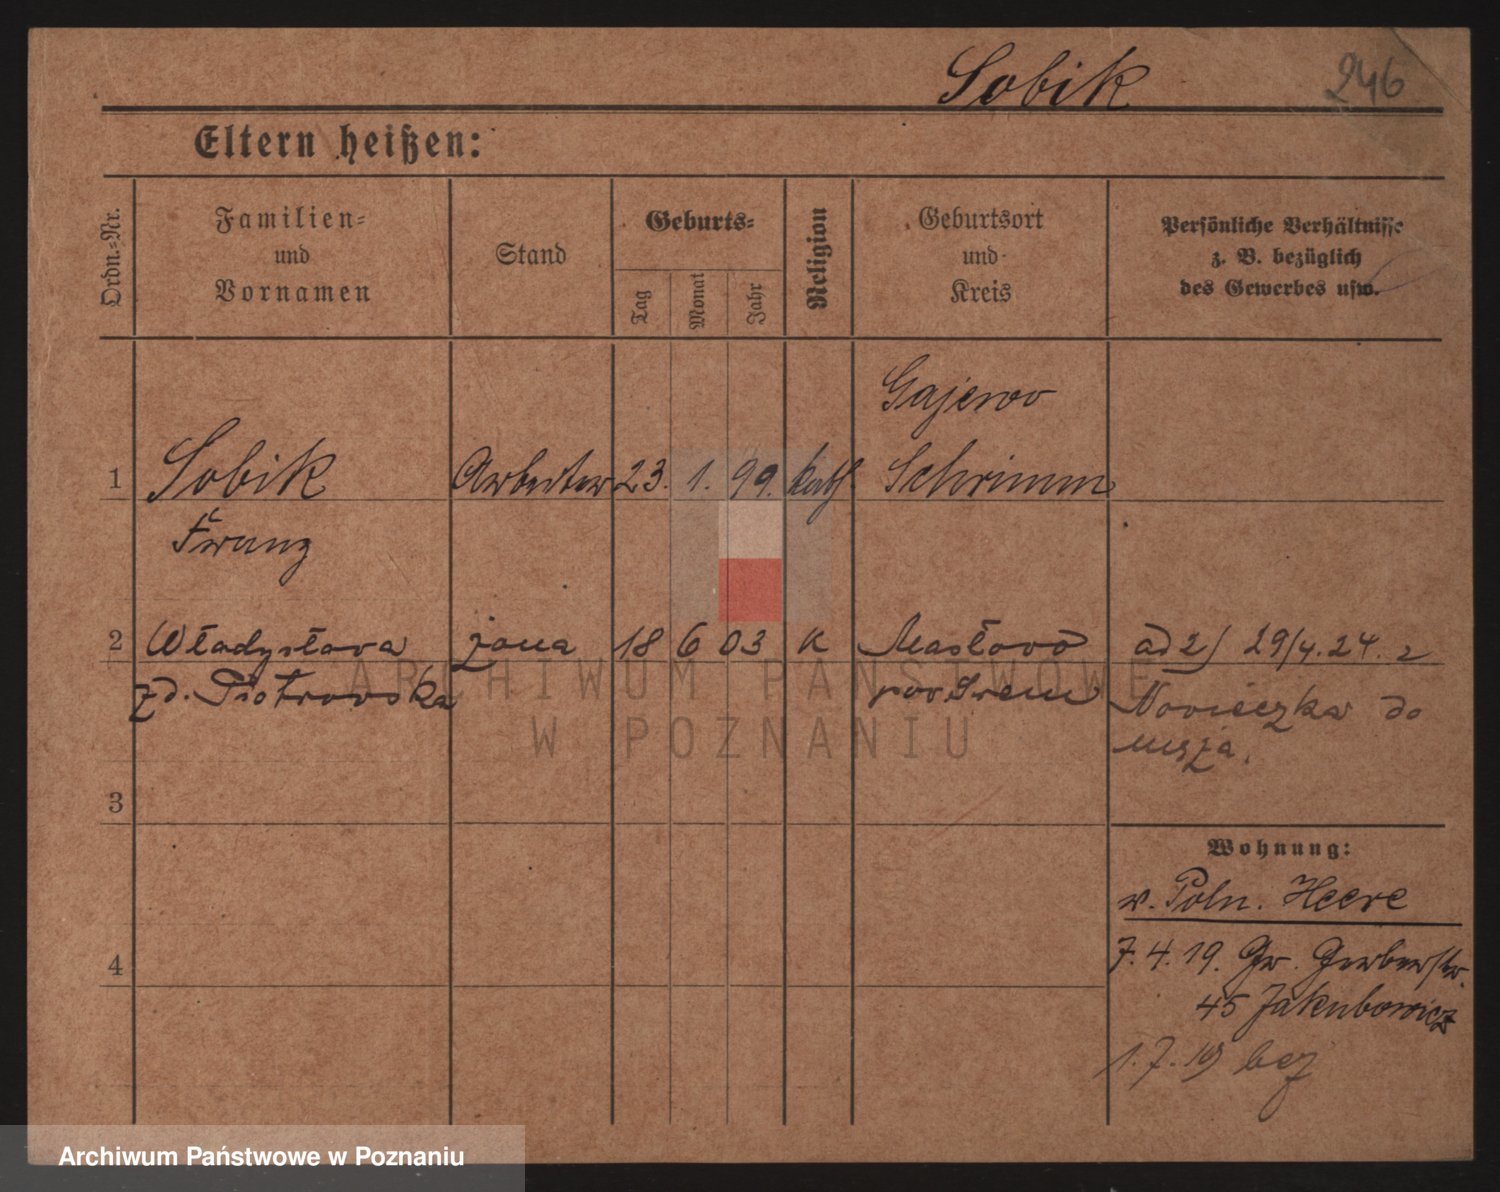 Sobik 246
Eltern heißen:
Ordn.=Nr.
Familien=
und
Vornamen
Stand
Geburts=
Tag
Monat
Jahr
Religion
Geburtsort
und
Kreis
Persönliche Verhältnisse
z. B. bezüglich
des Gewerbes usw.
Gajewo
1 Sobik Arbeiter 23. 1. 99. kath Schrimm
Franz
2 Władysława żona 18 6 03 K Masłowo ad 2/ 29/4.24. z
zd. Piotrowska pow Srem Nowieczka do
męża.
3
Wohnung:
v. Poln. Heere
7.4.19. Gr. Gerberstr.
45 Jakubowicz
4
1.7.19
ARCHIWUM PAŃSTWOWE
W POZNANIU
Archiwum Państwowe w Poznaniu